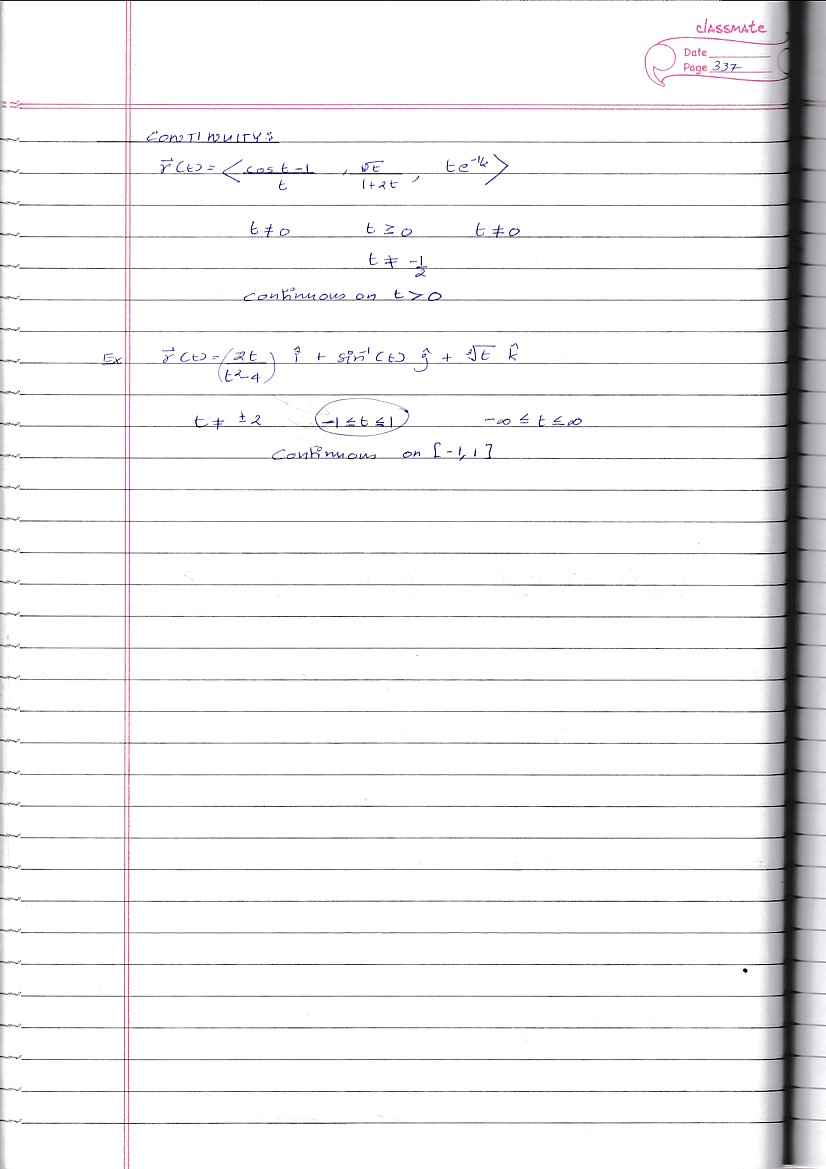 classmate
Date
Page 337
CONTINUITY:
r⃗(t) = < (cos t - 1)/t , √t/(1+2t) , t e^(-1/t) >
t ≠ 0 t ≥ 0 t ≠ 0
t ≠ -1/2
continuous on t > 0
Ex r⃗(t) = (2t/(t²-4)) î + sin⁻¹(t) ĵ + ∛t k̂
t ≠ ±2 -1 ≤ t ≤ 1 -∞ ≤ t ≤ ∞
Continuous on [-1, 1]